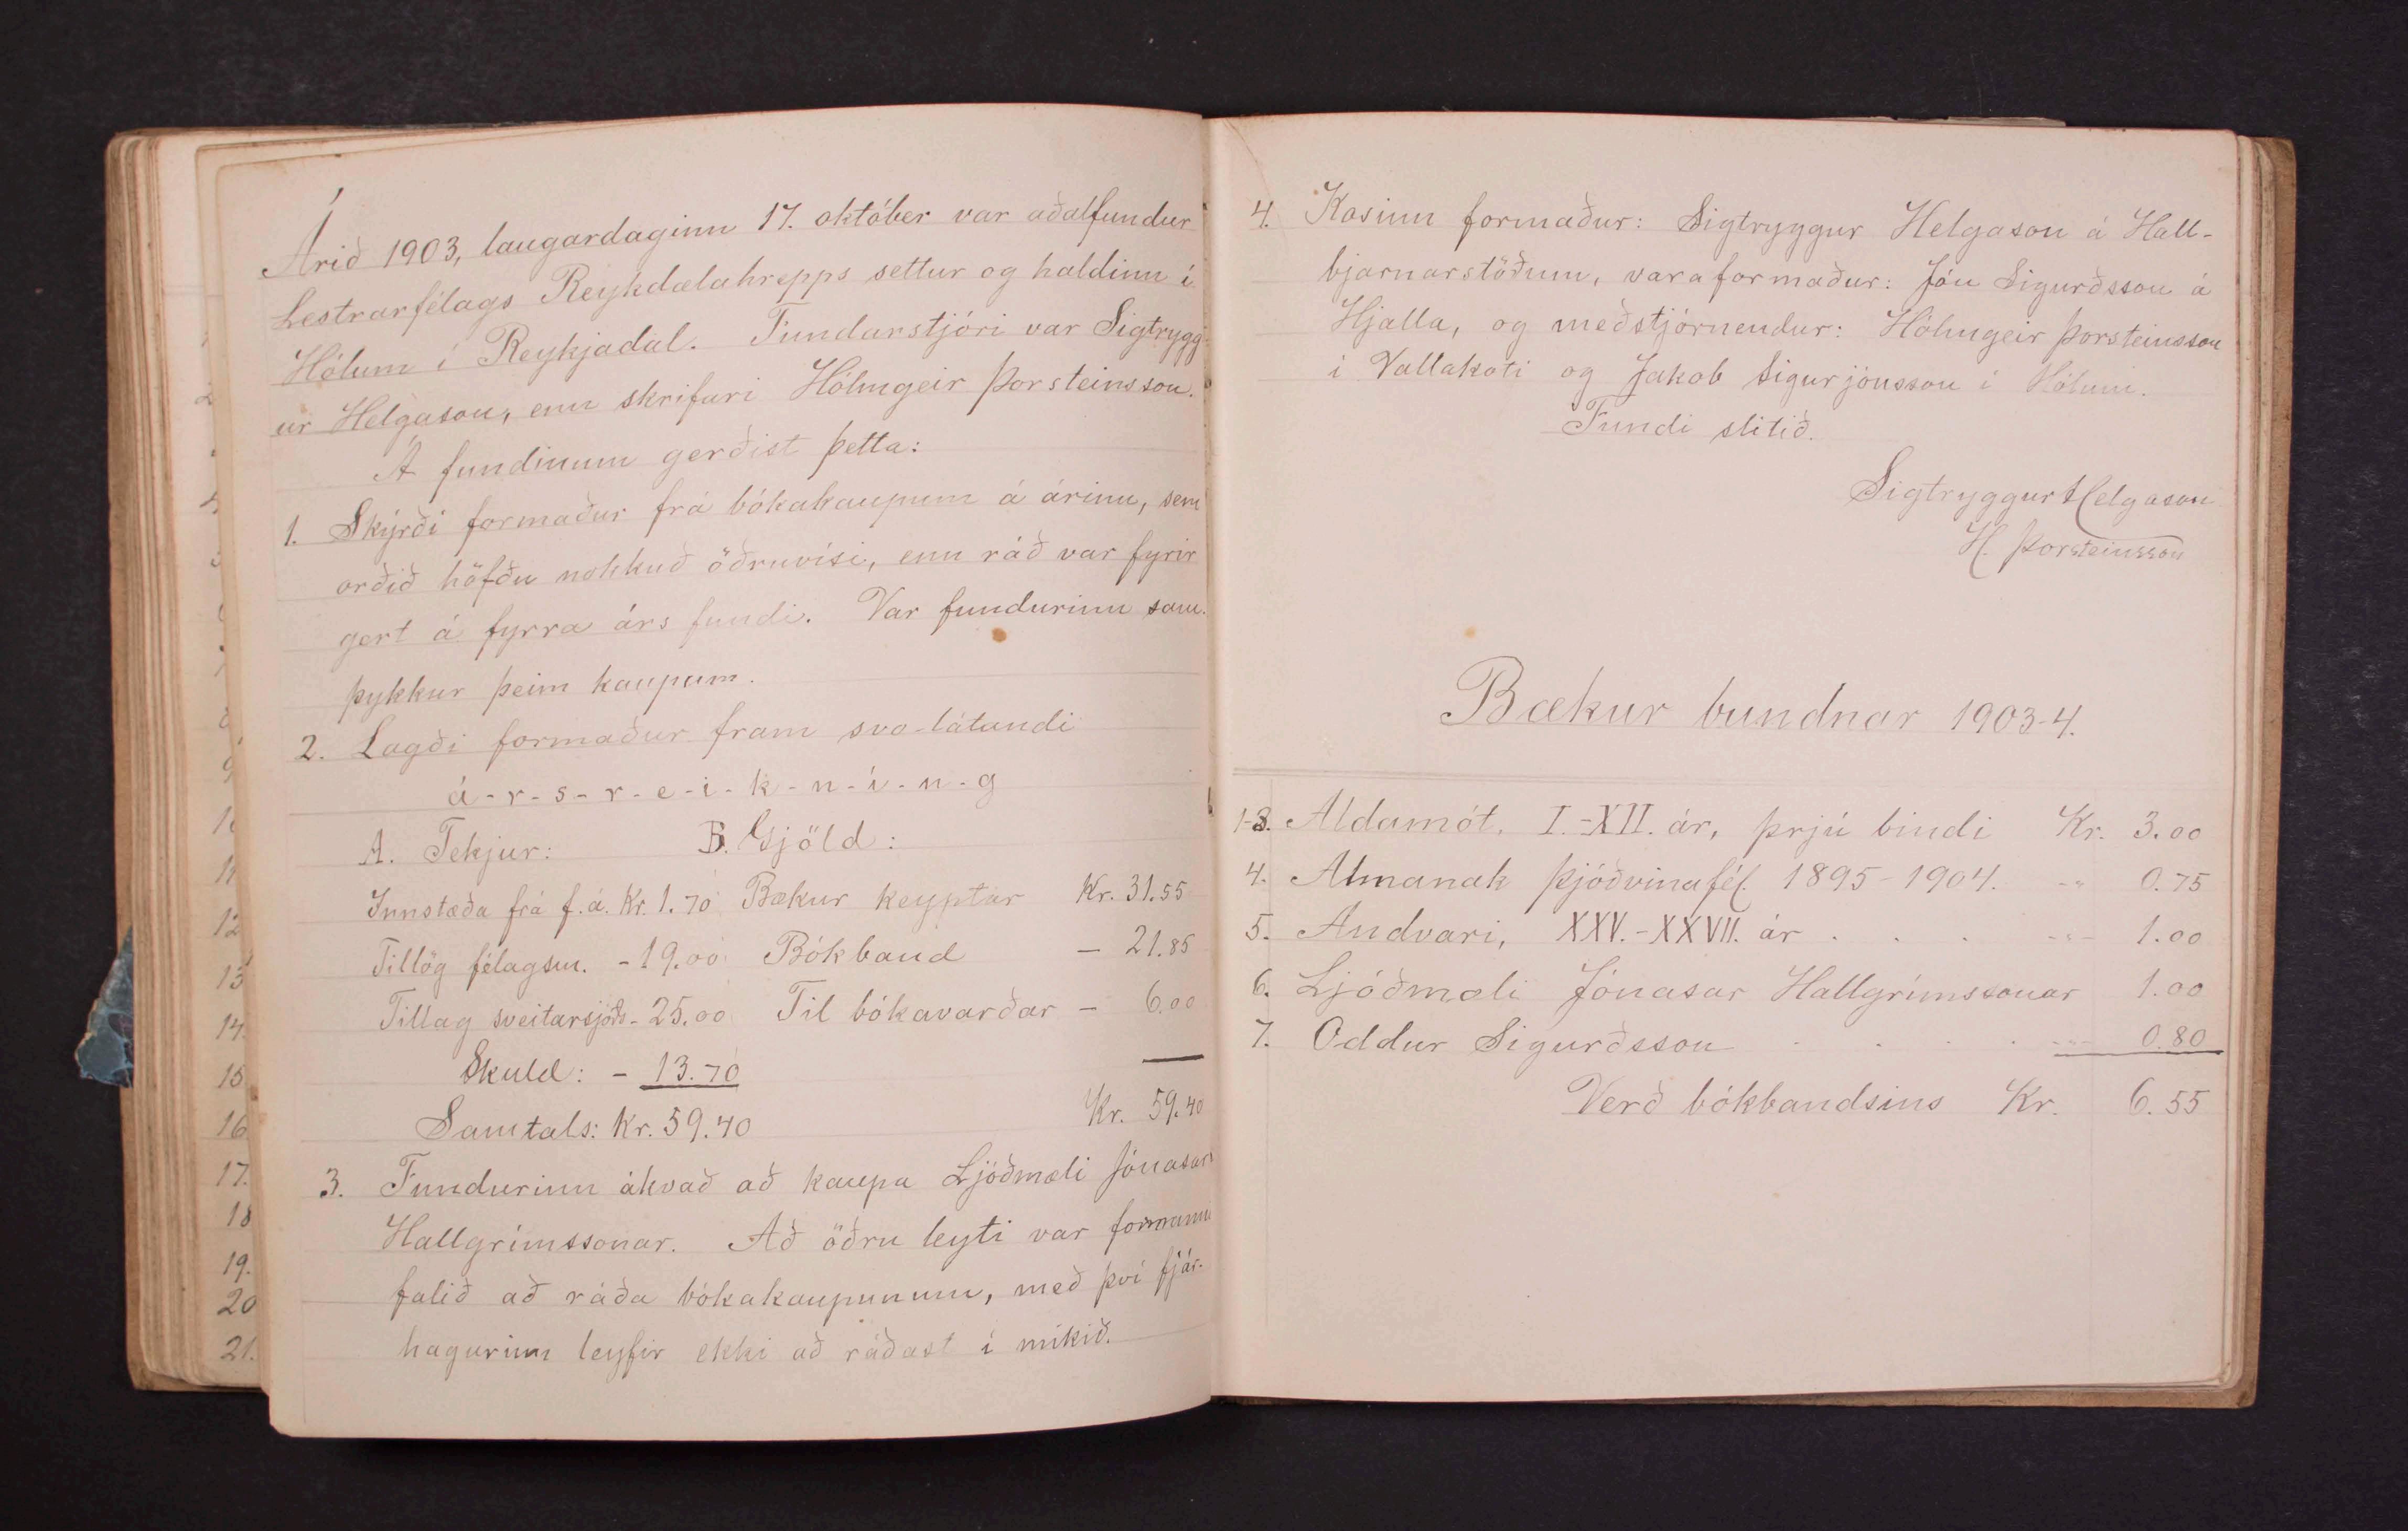 Árið 1903, laugardaginn 17. október var aðalfundur
Lestrarfélags Reykdælahrepps settur og haldinn í
Hólum í Reykjadal. Fundarstjóri var Sigtrygg-
ur Helgason, enn skrifari Hólmgeir Þorsteinsson.
Á fundinum gerðist þetta:
1. Skýrði formaður frá bókakaupum á árinu, sem
orðið höfðu nokkuð öðruvísi, enn ráð var fyrir
gert á fyrra árs fundi. Var fundurinn sam-
þykkur þeim kaupum.
2. Lagði formaður fram svo-látandi
á-r-s-r-e-i-k-n-í-n-g
A. Tekjur: B. Gjöld:
Innstæða frá f.á. Kr. 1.70 Bækur keyptar Kr. 31.55
Tillög félagsm. - 19.00 Bókband - 21.85
Tillag sveitarsjóðs - 25.00 Til bókavarðar - 6.00
Skuld: - 13.70
Samtals: Kr. 59.40 Kr. 59.40
3. Fundurinn ákvað að kaupa Ljóðmæli Jónasar
Hallgrímssonar. Að öðru leyti var formanni
falið að ráða bókakaupunum, með því fjár-
hagurinn leyfir ekki að ráðast í mikið.
4. Kosinn formaður: Sigtryggur Helgason á Hall-
bjarnarstöðum, varaformaður: Jón Sigurðsson á
Hjalla, og meðstjórnendur: Hólmgeir Þorsteinsson
í Vallakoti og Jakob Sigurjónsson í Hólum.
Fundi slitið.
Sigtryggur Helgason
H. Þorsteinsson
Bækur bundnar 1903-4.
1-3. Aldamót. I.-XII. ár, þrjú bindi Kr. 3.00
4. Almanak Þjóðvinafél. 1895-1904. -"- 0.75
5. Andvari, XXV.-XXVII. ár . . . -"- 1.00
6. Ljóðmæli Jónasar Hallgrímssonar 1.00
7. Oddur Sigurðsson . . . . -"- 0.80
Verð bókbandsins Kr. 6.55
2
9
11
12
13
14.
15
16
17.
18
19.
20
21.